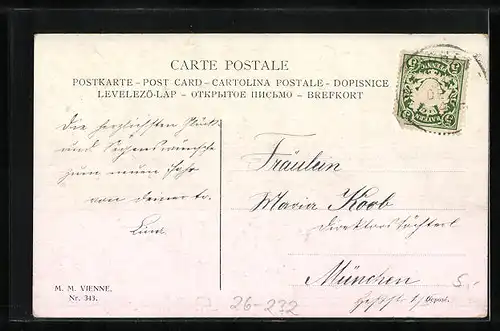 CARTE POSTALE
POSTKARTE – POST CARD – CARTOLINA POSTALE – DOPISNICE
LEVELEZŐ-LAP – ОТКРЫТОЕ ПИСЬМО – BREFKORT
BAYERN
Die herzlichsten Glück-
und Segenswünsche
zum neuen Jahr
von deiner tr.
Fräulein
Maria Koob
Direktorstöchterl
München
M. M. VIENNE.
Nr. 343.
26-232
5.-